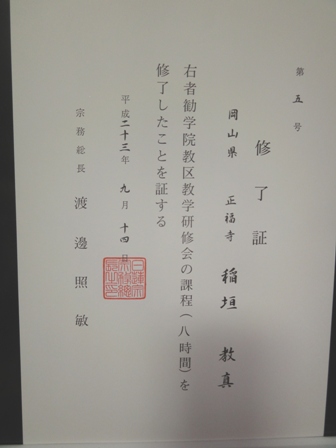 第五号
修了証
岡山県 正福寺 稲垣 教真
右者勧学院教区教学研修会の課程(八時間)を
修了したことを証する
平成二十三年 九月 十四日
宗務総長 渡邊照敏